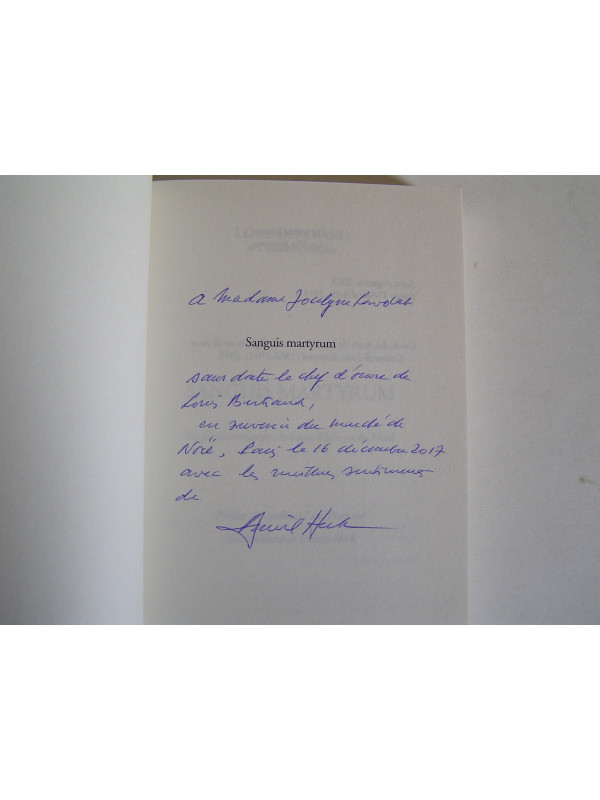 A Madame Jocelyne
Sanguis martyrum
sans doute le chef d'œuvre de
Louis Bertrand,
en souvenir du marché de
Noël, Paris le 16 décembre 2017
avec les meilleurs sentiments
de
MARTYRUM